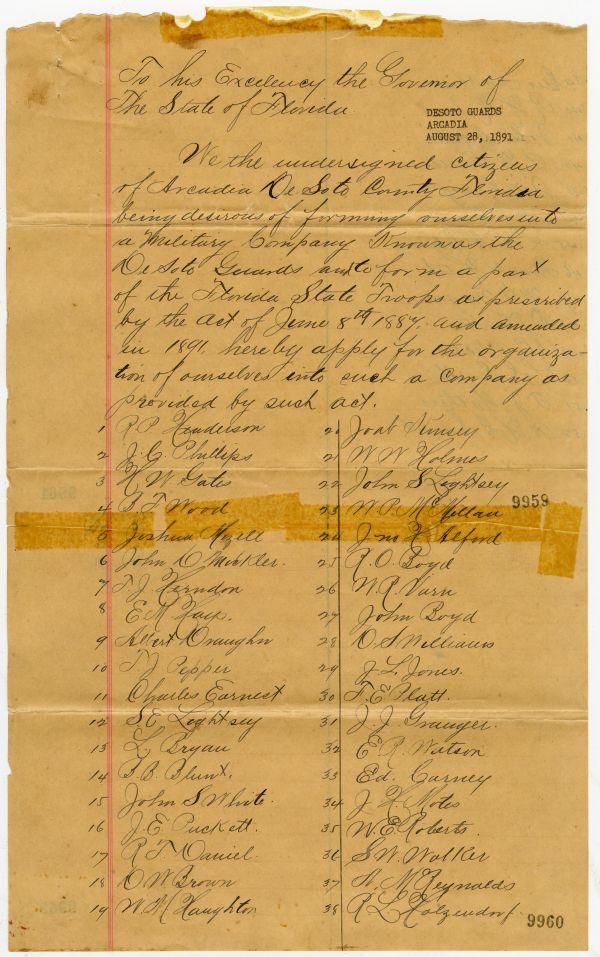 To his Excelency the Governor of
The State of Florida
DESOTO GUARDS
ARCADIA
AUGUST 28, 1891
We the undersigned citizens
of Arcadia DeSoto County Florida
being desirous of forming ourselves into
a Military Company Known as the
DeSoto Guards and to form a part
of the Florida State Troops as prescribed
by the act of June 8th 1887. and amended
in 1891. hereby apply for the organiza-
tion of ourselves into such a company as
provided by such act.
1 R P Henderson
2 J. C. Phillips
3 H W Gates
4 B F Wood
5 Joshua Mizell
6 John D Minkler.
7 F J Herndon
8 E M Hays.
9 Albert Draughn
10 T J Pepper
11 Charles Earnest
12 S E Lightsey
13 L Bryan
14 B. B. Blunt.
15 John S White.
16 J. E. Puckett.
17 R F. Daniel.
18 O W. Brown
19 W. M Haughton
20 Joab Kinsey
21 W W Holmes
22 John S Lightsey
23 W. P. McMillan
9959
24 Jno H Alford
25 R. O. Boyd
26 W. R. Varn
27 John Boyd
28 O. S Williams
29 J. L. Jones.
30 F. E. Platt.
31 J. J Granger.
32 E R. Watson
33 Ed. Carney
34 J. H. Motes
35 W. E. Roberts.
36 S. W. Walker
37 A. McReynolds
38 R L Holzendorf
9960